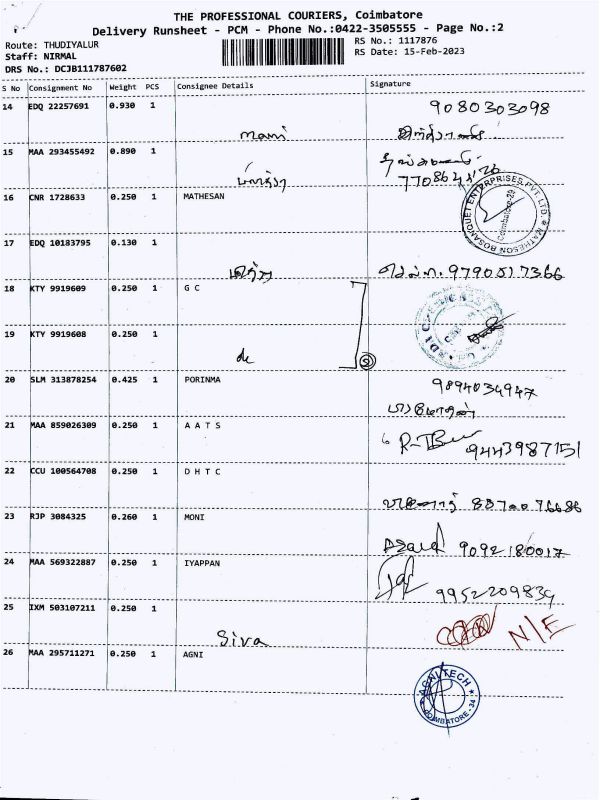 THE PROFESSIONAL COURIERS, Coimbatore
Delivery Runsheet - PCM - Phone No.:0422-3505555 - Page No.:2
Route: THUDIYALUR RS No.: 1117876
Staff: NIRMAL RS Date: 15-Feb-2023
DRS No.: DCJB111787602
S No Consignment No Weight PCS Consignee Details Signature
14 EDQ 22257691 0.930 1 9080303098
mani
15 MAA 293455492 0.890 1
16 CNR 1728633 0.250 1 MATHESAN
MATHESON BOSANQUET ENTERPRISES PVT LTD. Coimbatore-29
17 EDQ 10183795 0.130 1
9790517366
18 KTY 9919609 0.250 1 G C
19 KTY 9919608 0.250 1
do
20 SLM 313878254 0.425 1 PORINMA 9894034947
21 MAA 859026309 0.250 1 A A T S
9443987151
22 CCU 100564708 0.250 1 D H T C
23 RJP 3084325 0.260 1 MONI
9092180017
24 MAA 569322887 0.250 1 IYAPPAN
9952209839
25 IXM 503107211 0.250 1
Siva N/E
26 MAA 295711271 0.250 1 AGNI
AGNITECH COIMBATORE - 34